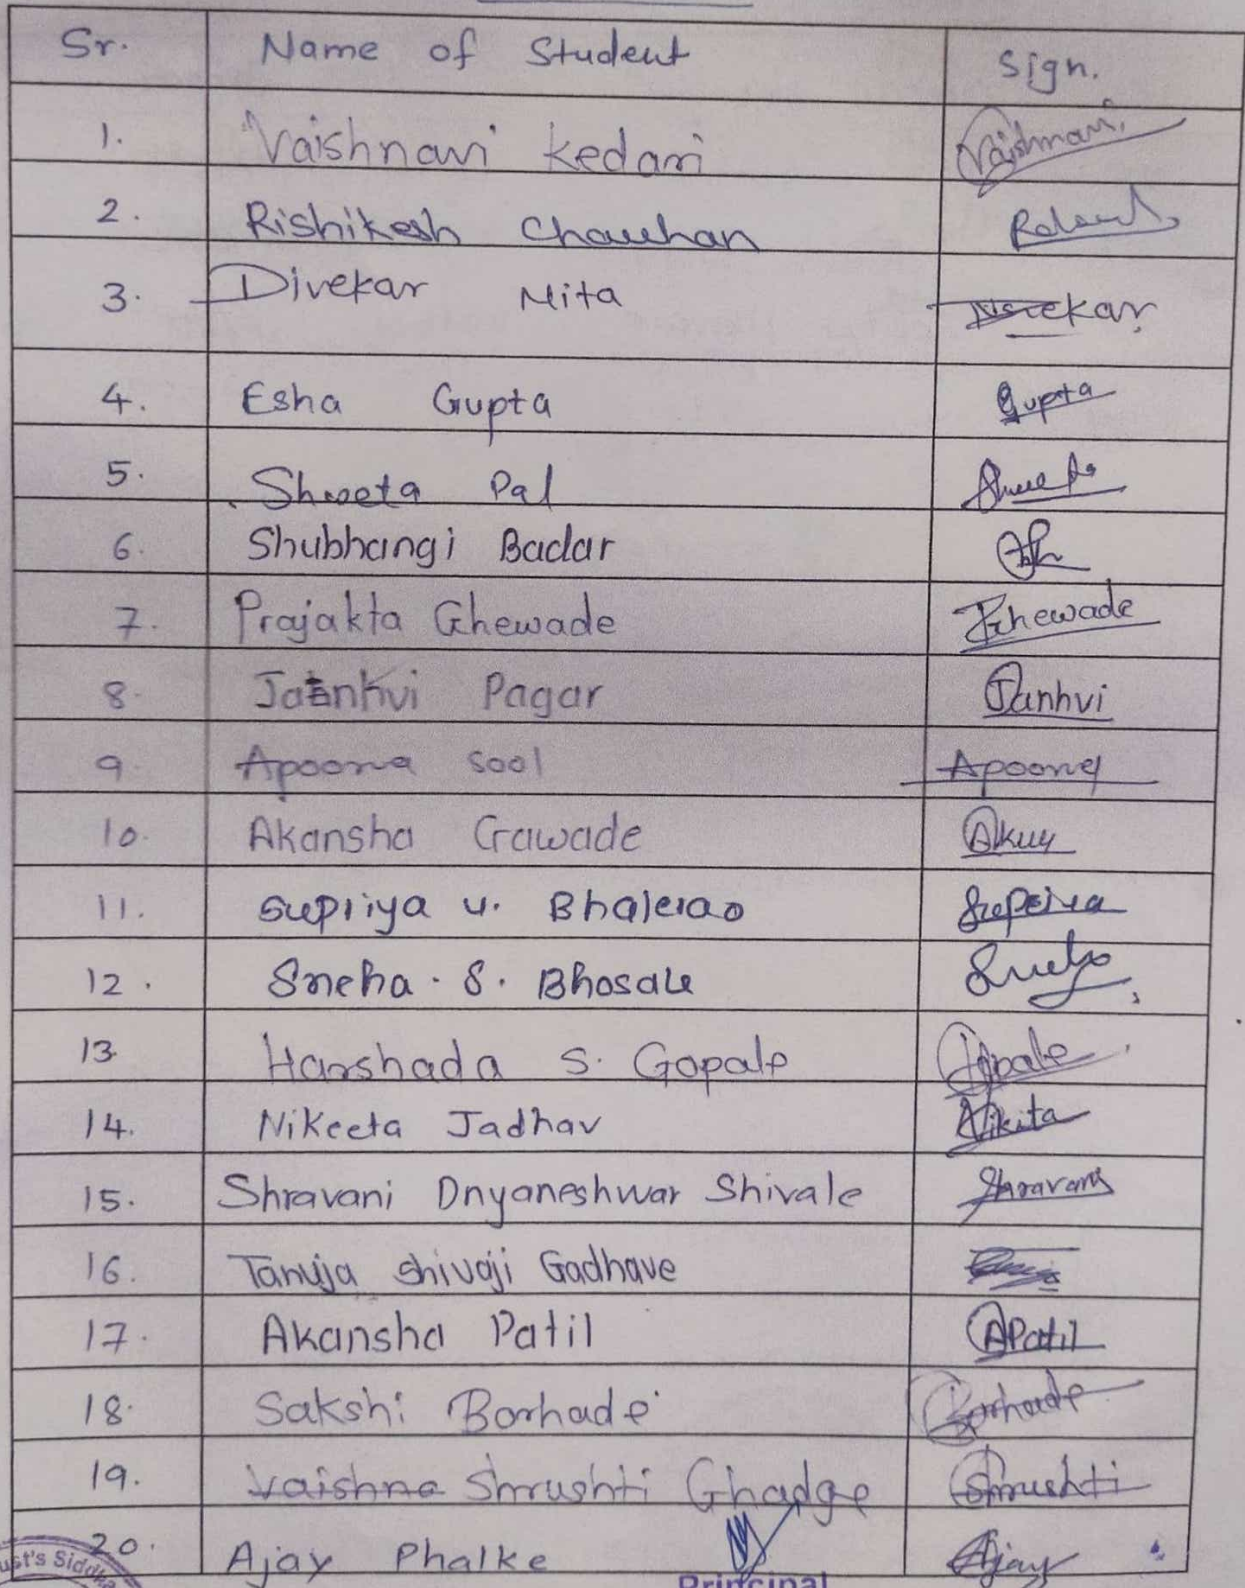 Sr. Name of Student Sign.
1. Vaishnavi Kedari Vaishnavi
2. Rishikesh Chauhan
3. Divekar Nita
4. Esha Gupta Gupta
5. Shweta Pal Shweta
6. Shubhangi Badar
7. Prajakta Ghewade Ghewade
8. Jaanhvi Pagar Janhvi
9. Apoorva Sool Apoorva
10. Akansha Gawade
11. Supriya U. Bhalerao Supriya
12. Sneha. S. Bhosale Sneha
13 Harshada S. Gopale Gopale
14. Nikeeta Jadhav Nikita
15. Shravani Dnyaneshwar Shivale Shravani
16. Tanuja Shivaji Gadhave
17. Akansha Patil APatil
18. Sakshi Borhade Borhade
19. Vaishna Shrushti Ghadge Shrushti
20. Ajay Phalke Ajay
Principal